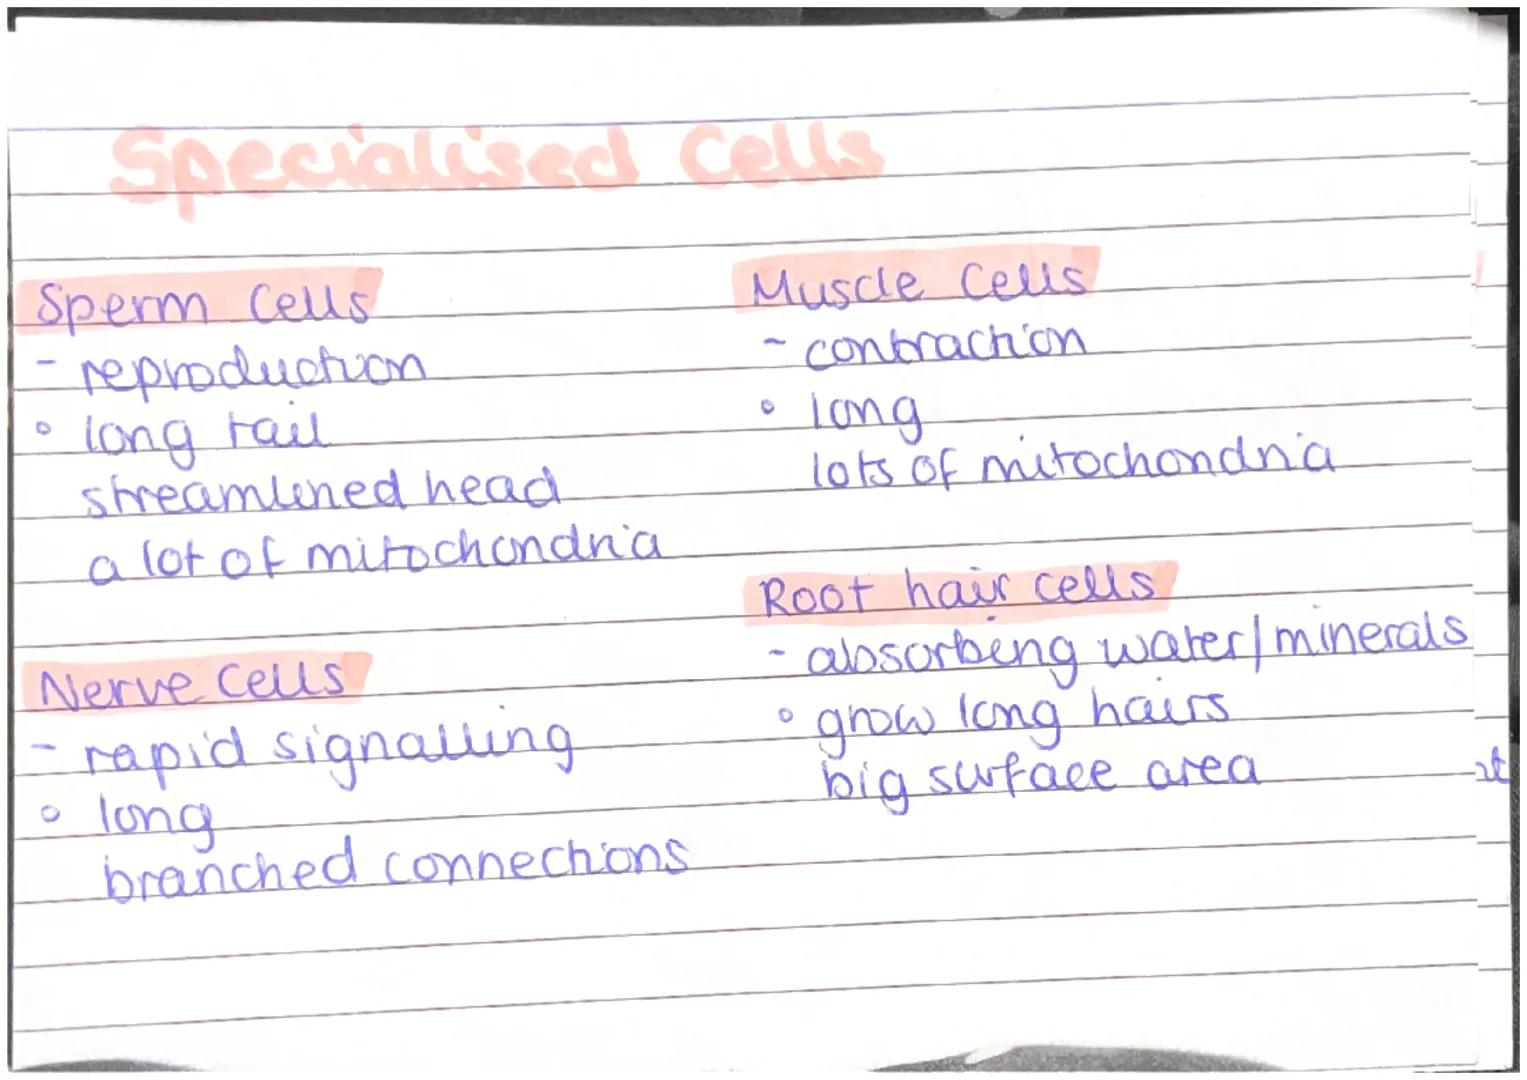 Specialised Cells
Sperm Cells
- reproduction
◦ long tail
streamlined head
a lot of mitochondria
Nerve Cells
- rapid signalling
◦ long
branched connections
Muscle Cells
- contraction
◦ long
lots of mitochondria
Root hair cells
- absorbing water/minerals
◦ grow long hairs
big surface area